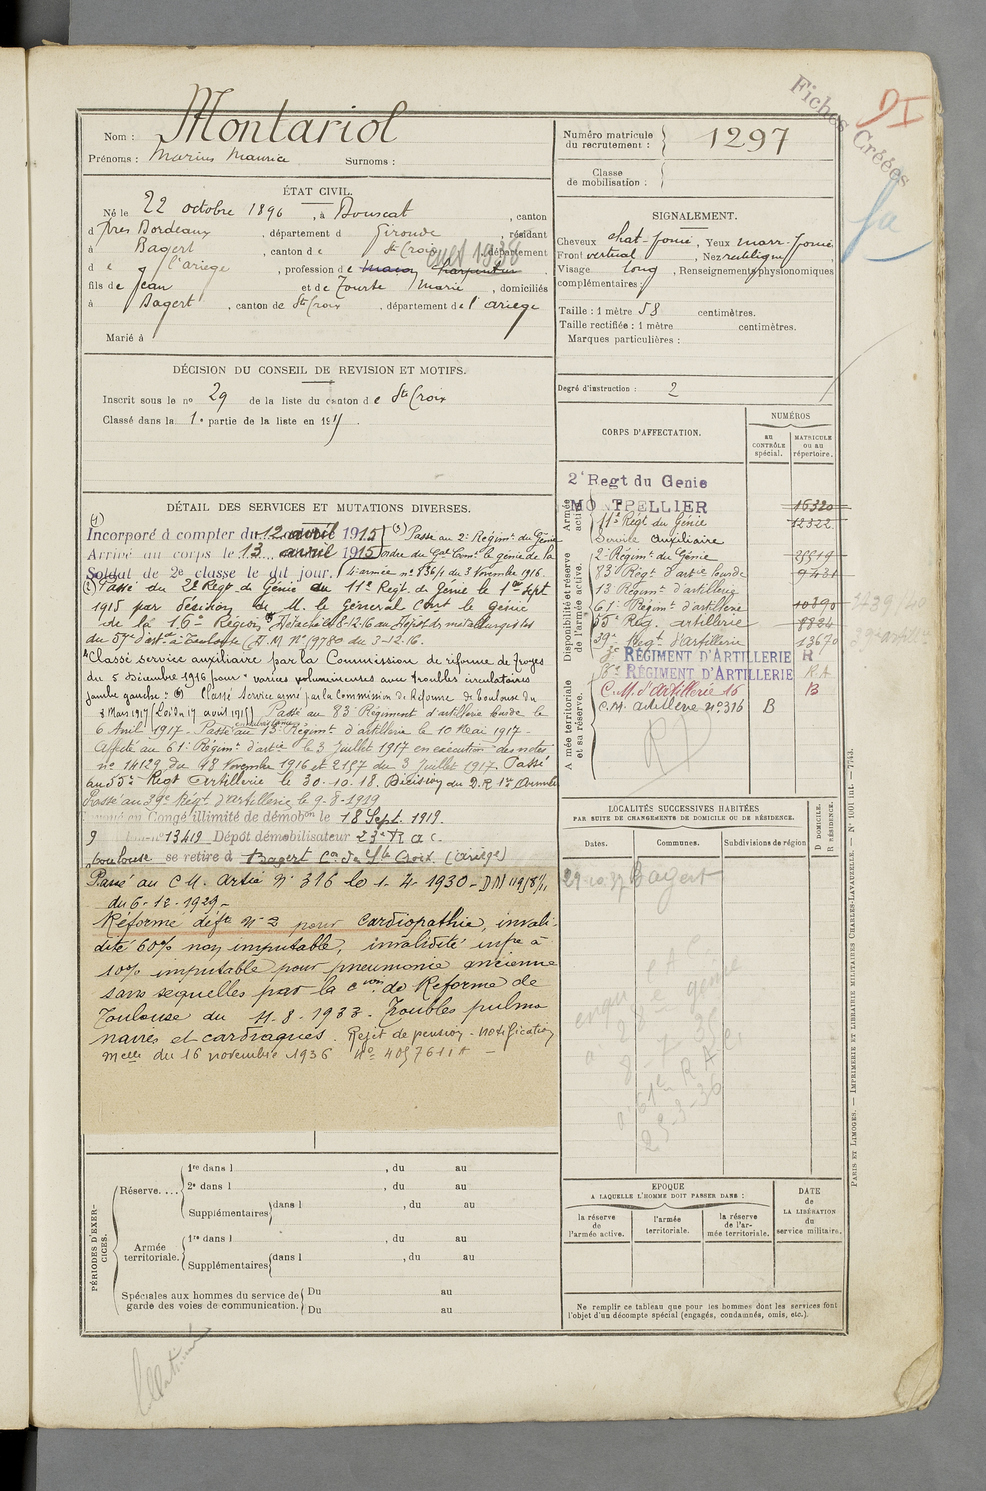 Fiches Créées
DI
Nom : Montariol
Prénoms : Marius Maurice Surnoms :
Numéro matricule du recrutement : 1297
Classe de mobilisation :
ÉTAT CIVIL.
Né le 22 octobre 1896, à Bouscat, canton
d près Bordeaux, département d Gironde, résidant
à Bagert, canton de Ste Croix, département
de l'ariège, profession de maçon charpentier
cult 1938
fils de Jean et de Tourte Marie, domiciliés
à Bagert, canton de Ste Croix, département de l'ariège
Marié à
SIGNALEMENT.
Cheveux chat-foncé, Yeux marr-foncé
Front vertical, Nez rectiligne,
Visage long, Renseignements physionomiques
complémentaires :
Taille : 1 mètre 58 centimètres.
Taille rectifiée : 1 mètre centimètres.
Marques particulières :
Degré d'instruction : 2
DÉCISION DU CONSEIL DE REVISION ET MOTIFS.
Inscrit sous le no 29 de la liste du canton de Ste Croix
Classé dans la 1e partie de la liste en 1915
DÉTAIL DES SERVICES ET MUTATIONS DIVERSES.
(1)
Incorporé à compter du 12 avril 1915
Arrivé au corps le 13 avril 1915
Soldat de 2e classe le dit jour.
(3) Passé au 2e Régimt du Génie
ordre du Gal Comt le génie de la
4e armée no 836/1 du 3 Novembre 1916.
(2) Passé du 2e Régt du Génie au 11e Regt du Génie le 1er Sept
1915 par décision de M. le Général Comt le génie
de la 16e Région Détaché le 8-12-16 au Dépôt des métallurgistes
du 57e d'art à Toulouse (D.M. No 19780 du 3-12-16.
4 Classé service auxiliaire par la Commission de réforme de Troyes
du 5 Décembre 1916 pour varices volumineuses avec troubles circulatoires
jambe gauche. Classé service armé par la Commission de Réforme de Toulouse du
3 Mars 1917 (Loi du 17 avril 1915) Passé au 83e Régiment d'artillerie lourde le
6 Avril 1917. Passé au 13e Régiment d'artillerie le 10 Mai 1917.
Affecté au 61e Régimt d'artie le 3 Juillet 1917 en exécution des notes
no 14129 du 18 Novembre 1916 et 2157 du 3 Juillet 1917. Passé
au 55e Regt Artillerie le 30-10-18. Décision du D.R 1re Armée
Passé au 39e Régt d'artillerie le 9-8-1919
en Congé illimité de démobon le 18 Sept. 1919.
9 no 13419 Dépôt démobilisateur 23e R a c.
Toulouse se retire à Bagert Con de Ste Croix. (ariège)
Passé au C.M. Artie No 316 le 1-4-1930 - DM
du 6-12-1929 -
Réformé déft No 2 pour cardiopathie, invali-
dité 60% non imputable, invalidité infre à
10% imputable pour pneumonie ancienne
sans séquelles par la Cion de Réforme de
Toulouse du 11-8-1933. Troubles pulmo
naires et cardiaques. Rejet de pension. Notification
melle du 16 novembre 1936 No 4057611A -
CORPS D'AFFECTATION.
NUMÉROS
au CONTRÔLE spécial.
MATRICULE ou au répertoire.
Armée active.
Disponibilité et réserve de l'armée active.
Armée territoriale et sa réserve.
2e Regt du Genie
MONTPELLIER 16320
11e Régt du Génie 12322
Service Auxiliaire
2e Régimt du Génie 25519
83e Régt d'artie lourde 9431
13e Régimt d'artillerie
61e Régimt d'artillerie 10390
55e Reg. artillerie 8824
39e Regt d'artillerie 13670
3e RÉGIMENT D'ARTILLERIE R
RÉGIMENT D'ARTILLERIE R.A
C.M. d'artillerie 16 B
C.M. artillerie no 316 B
LOCALITÉS SUCCESSIVES HABITÉES
PAR SUITE DE CHANGEMENTS DE DOMICILE OU DE RÉSIDENCE.
Dates. Communes. Subdivisions de région
D DOMICILE. R RÉSIDENCE.
29-10-37 Bagert
PÉRIODES D'EXERCICES.
Réserve....
1re dans l , du au
2e dans l , du au
Supplémentaires dans l , du au
Armée territoriale.
1re dans l , du au
Supplémentaires dans l , du au
Spéciales aux hommes du service de garde des voies de communication.
Du au
Du au
EPOQUE
A LAQUELLE L'HOMME DOIT PASSER DANS :
la réserve de l'armée active.
l'armée territoriale.
la réserve de l'armée territoriale.
DATE de LA LIBÉRATION du service militaire.
Ne remplir ce tableau que pour les hommes dont les services font
l'objet d'un décompte spécial (engagés, condamnés, omis, etc.).
PARIS ET LIMOGES. — IMPRIMERIE ET LIBRAIRIE MILITAIRES CHARLES-LAVAUZELLE. — No 1001 int. — 7753.